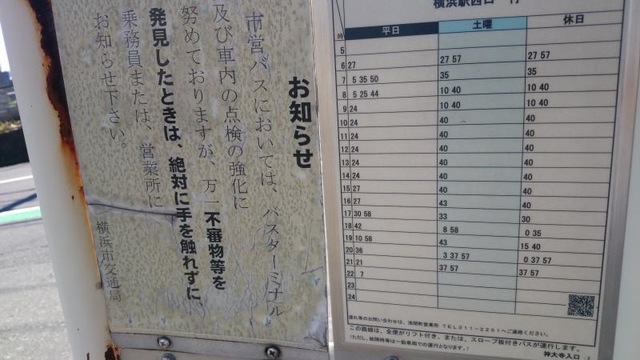 お知らせ
市営バスにおいては、バスターミナル
及び車内の点検の強化に
努めておりますが、万一不審物等を
発見したときは、絶対に手を触れずに
乗務員または、営業所に
お知らせ下さい。
横浜市交通局
時 平日 土曜 休日
5
6 27 27 57 27 57
7 5 35 50 35 35
8 5 25 44 10 40 10 40
9 24 10 40 10 40
10 24 40 40
11 24 40 40
12 24 40 40
13 24 40 40
14 24 40 40
15 24 40 40
16 27 43 40
17 30 58 33 30
18 42 8 58 0 35
19 10 58 43 15 40
20 36 3 37 57 0 37 57
21 21 37 57 37 57
22 7
23
24
この路線は、全便がリフト付き、または、スロープ板付きバスが運行します。
神大寺入口